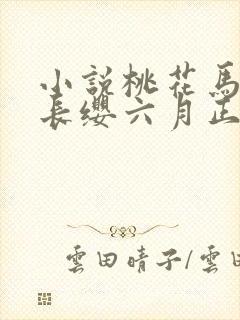 小說桃花馬
長纓六月正
雲田晴子/雲田